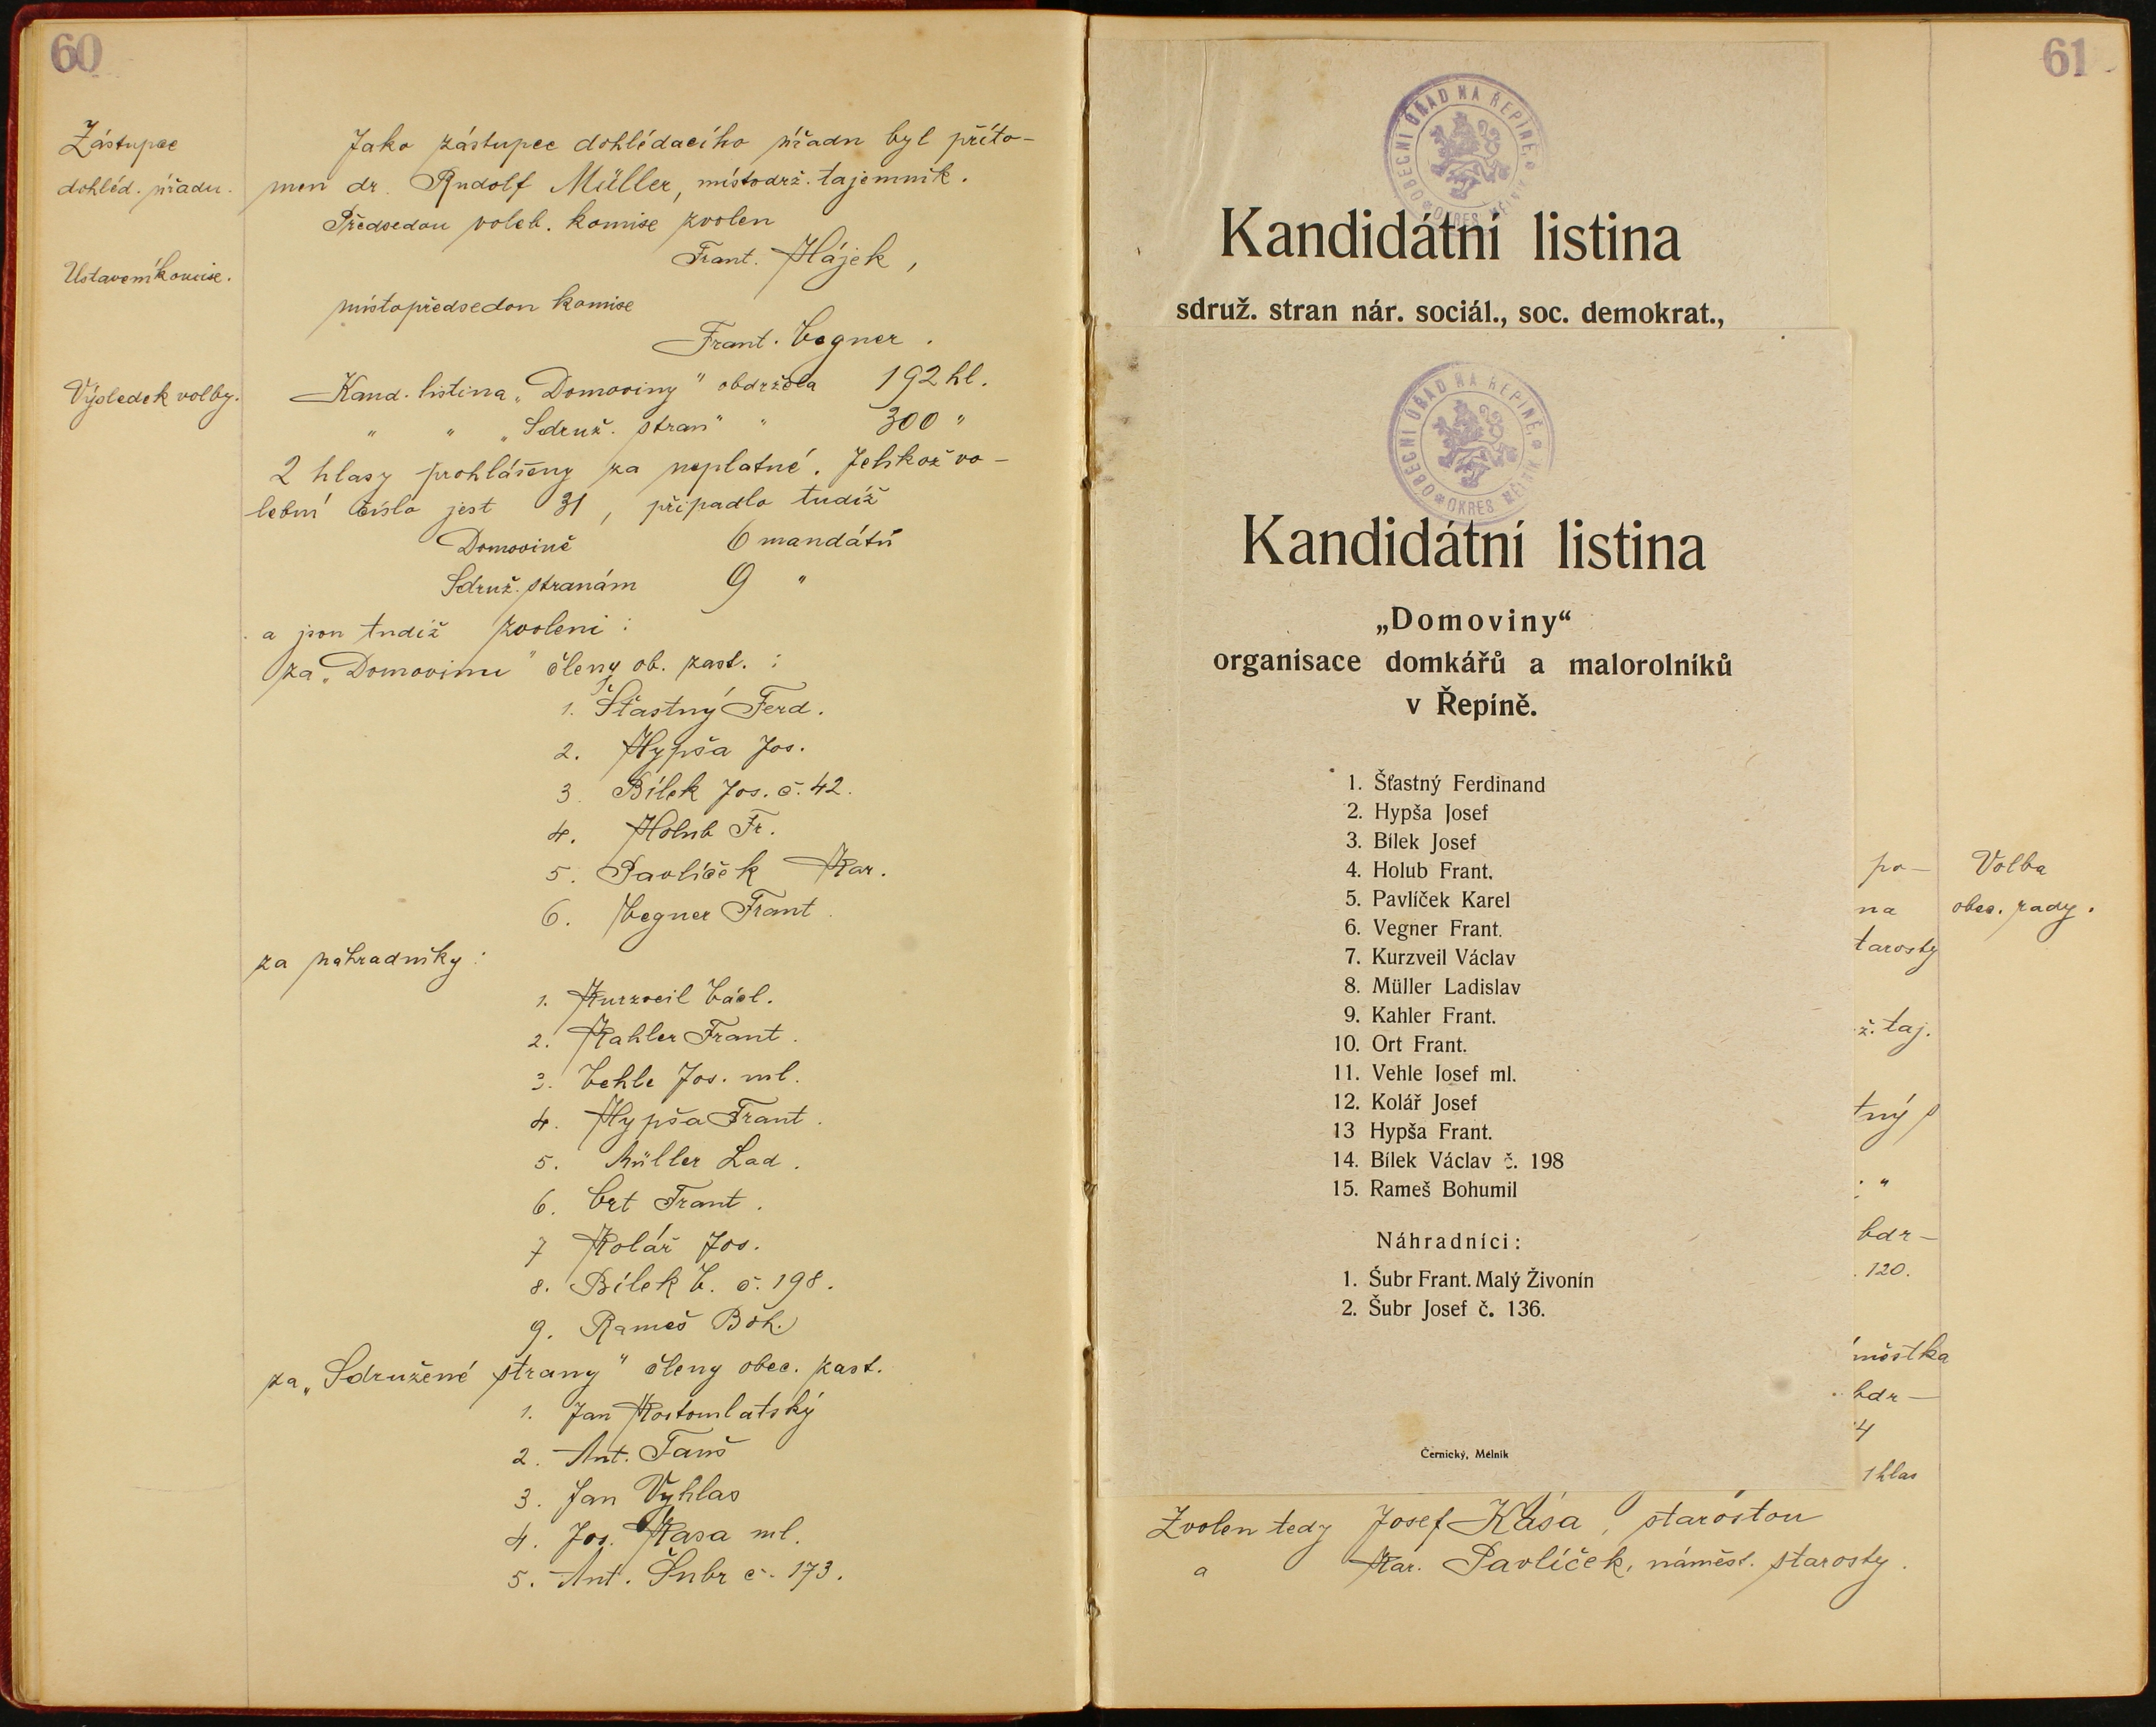 60
Zástupce
dohléd. úřadu.
Jako zástupce dohlédacího úřadu byl příto-
men dr. Rudolf Müller, místodrž. tajemník.
Předsedou voleb. komise zvolen
Frant. Hájek,
Ustavení komise.
místopředsedou komise
Frant. Vegner.
Výsledek volby.
Kand. listina „Domoviny" obdržela 192 hl.
" " „Sdruž. stran" " 300 "
2 hlasy prohlášeny za neplatné. Jelikož vo-
lební číslo jest 31, připadlo tudíž
Domovině 6 mandátů
Sdruž. stranám 9 "
a jsou tudíž zvoleni:
za „Domovinu" členy ob. zast.:
1. Šťastný Ferd.
2. Hypša Jos.
3. Bílek Jos. č. 42.
4. Holub Fr.
5. Pavlíček Kar.
6. Vegner Frant.
za náhradníky:
1. Kurzveil Václ.
2. Kahler Frant.
3. Vehle Jos. ml.
4. Hypša Frant.
5. Müller Lad.
6. Ort Frant.
7 Kolář Jos.
8. Bílek V. č. 198.
9. Rameš Boh.
za „Sdružené strany" členy obec. zast.
1. Jan Kostomlatský
2. Ant. Fanš
3. Jan Vyhlas
4. Jos. Kasa ml.
5. Ant. Šubr č. 173.
61
OBECNÍ ÚŘAD NA ŘEPÍNĚ,
OKRES MĚLNÍK
Kandidátní listina
sdruž. stran nár. sociál., soc. demokrat.,
OBECNÍ ÚŘAD NA ŘEPÍNĚ,
OKRES MĚLNÍK
Kandidátní listina
„Domoviny“
organisace domkářů a malorolníků
v Řepíně.
1. Šťastný Ferdinand
2. Hypša Josef
3. Bílek Josef
4. Holub Frant.
5. Pavlíček Karel
6. Vegner Frant.
7. Kurzveil Václav
8. Müller Ladislav
9. Kahler Frant.
10. Ort Frant.
11. Vehle Josef ml.
12. Kolář Josef
13 Hypša Frant.
14. Bílek Václav č. 198
15. Rameš Bohumil
Náhradníci:
1. Šubr Frant. Malý Živonín
2. Šubr Josef č. 136.
Černický, Mělník
po-
na
tarosty
ž. taj.
tný
"
bdr-
120.
městka
bdr-
4
1 hlas
Volba
obec. rady.
Zvolen tedy Josef Kása, starostou
a Kar. Pavlíček, náměst. starosty.